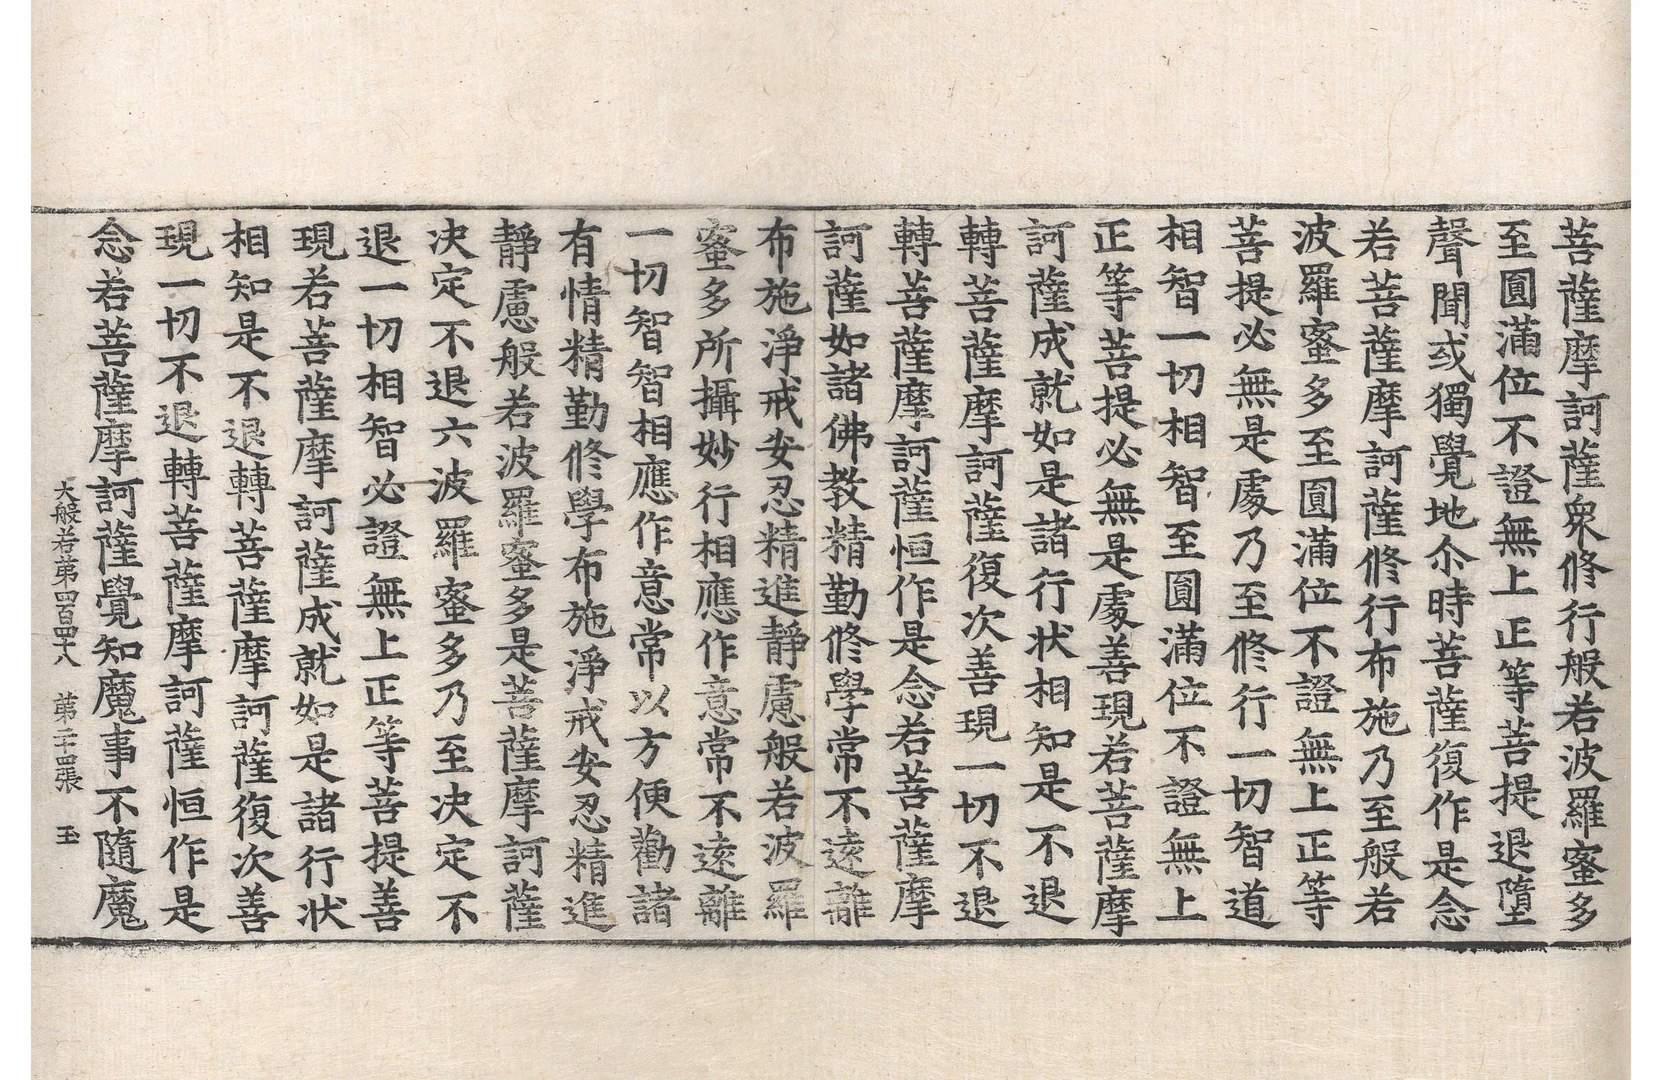 菩薩摩訶薩衆修行般若波羅蜜多
至圓滿位不證無上正等菩提退墮
聲聞或獨覺地尒時菩薩復作是念
若菩薩摩訶薩修行布施乃至般若
波羅蜜多至圓滿位不證無上正等
菩提必無是處乃至修行一切智道
相智一切相智至圓滿位不證無上
正等菩提必無是處善現若菩薩摩
訶薩成就如是諸行狀相知是不退
轉菩薩摩訶薩復次善現一切不退
轉菩薩摩訶薩恒作是念若菩薩摩
訶薩如諸佛教精勤修學常不遠離
布施淨戒安忍精進靜慮般若波羅
蜜多所攝妙行相應作意常不遠離
一切智智相應作意常以方便勸諸
有情精勤修學布施淨戒安忍精進
靜慮般若波羅蜜多是菩薩摩訶薩
決定不退六波羅蜜多乃至決定不
退一切相智必證無上正等菩提善
現若菩薩摩訶薩成就如是諸行狀
相知是不退轉菩薩摩訶薩復次善
現一切不退轉菩薩摩訶薩恒作是
念若菩薩摩訶薩覺知魔事不隨魔
大般若第四百四十八 第二十四張 玉